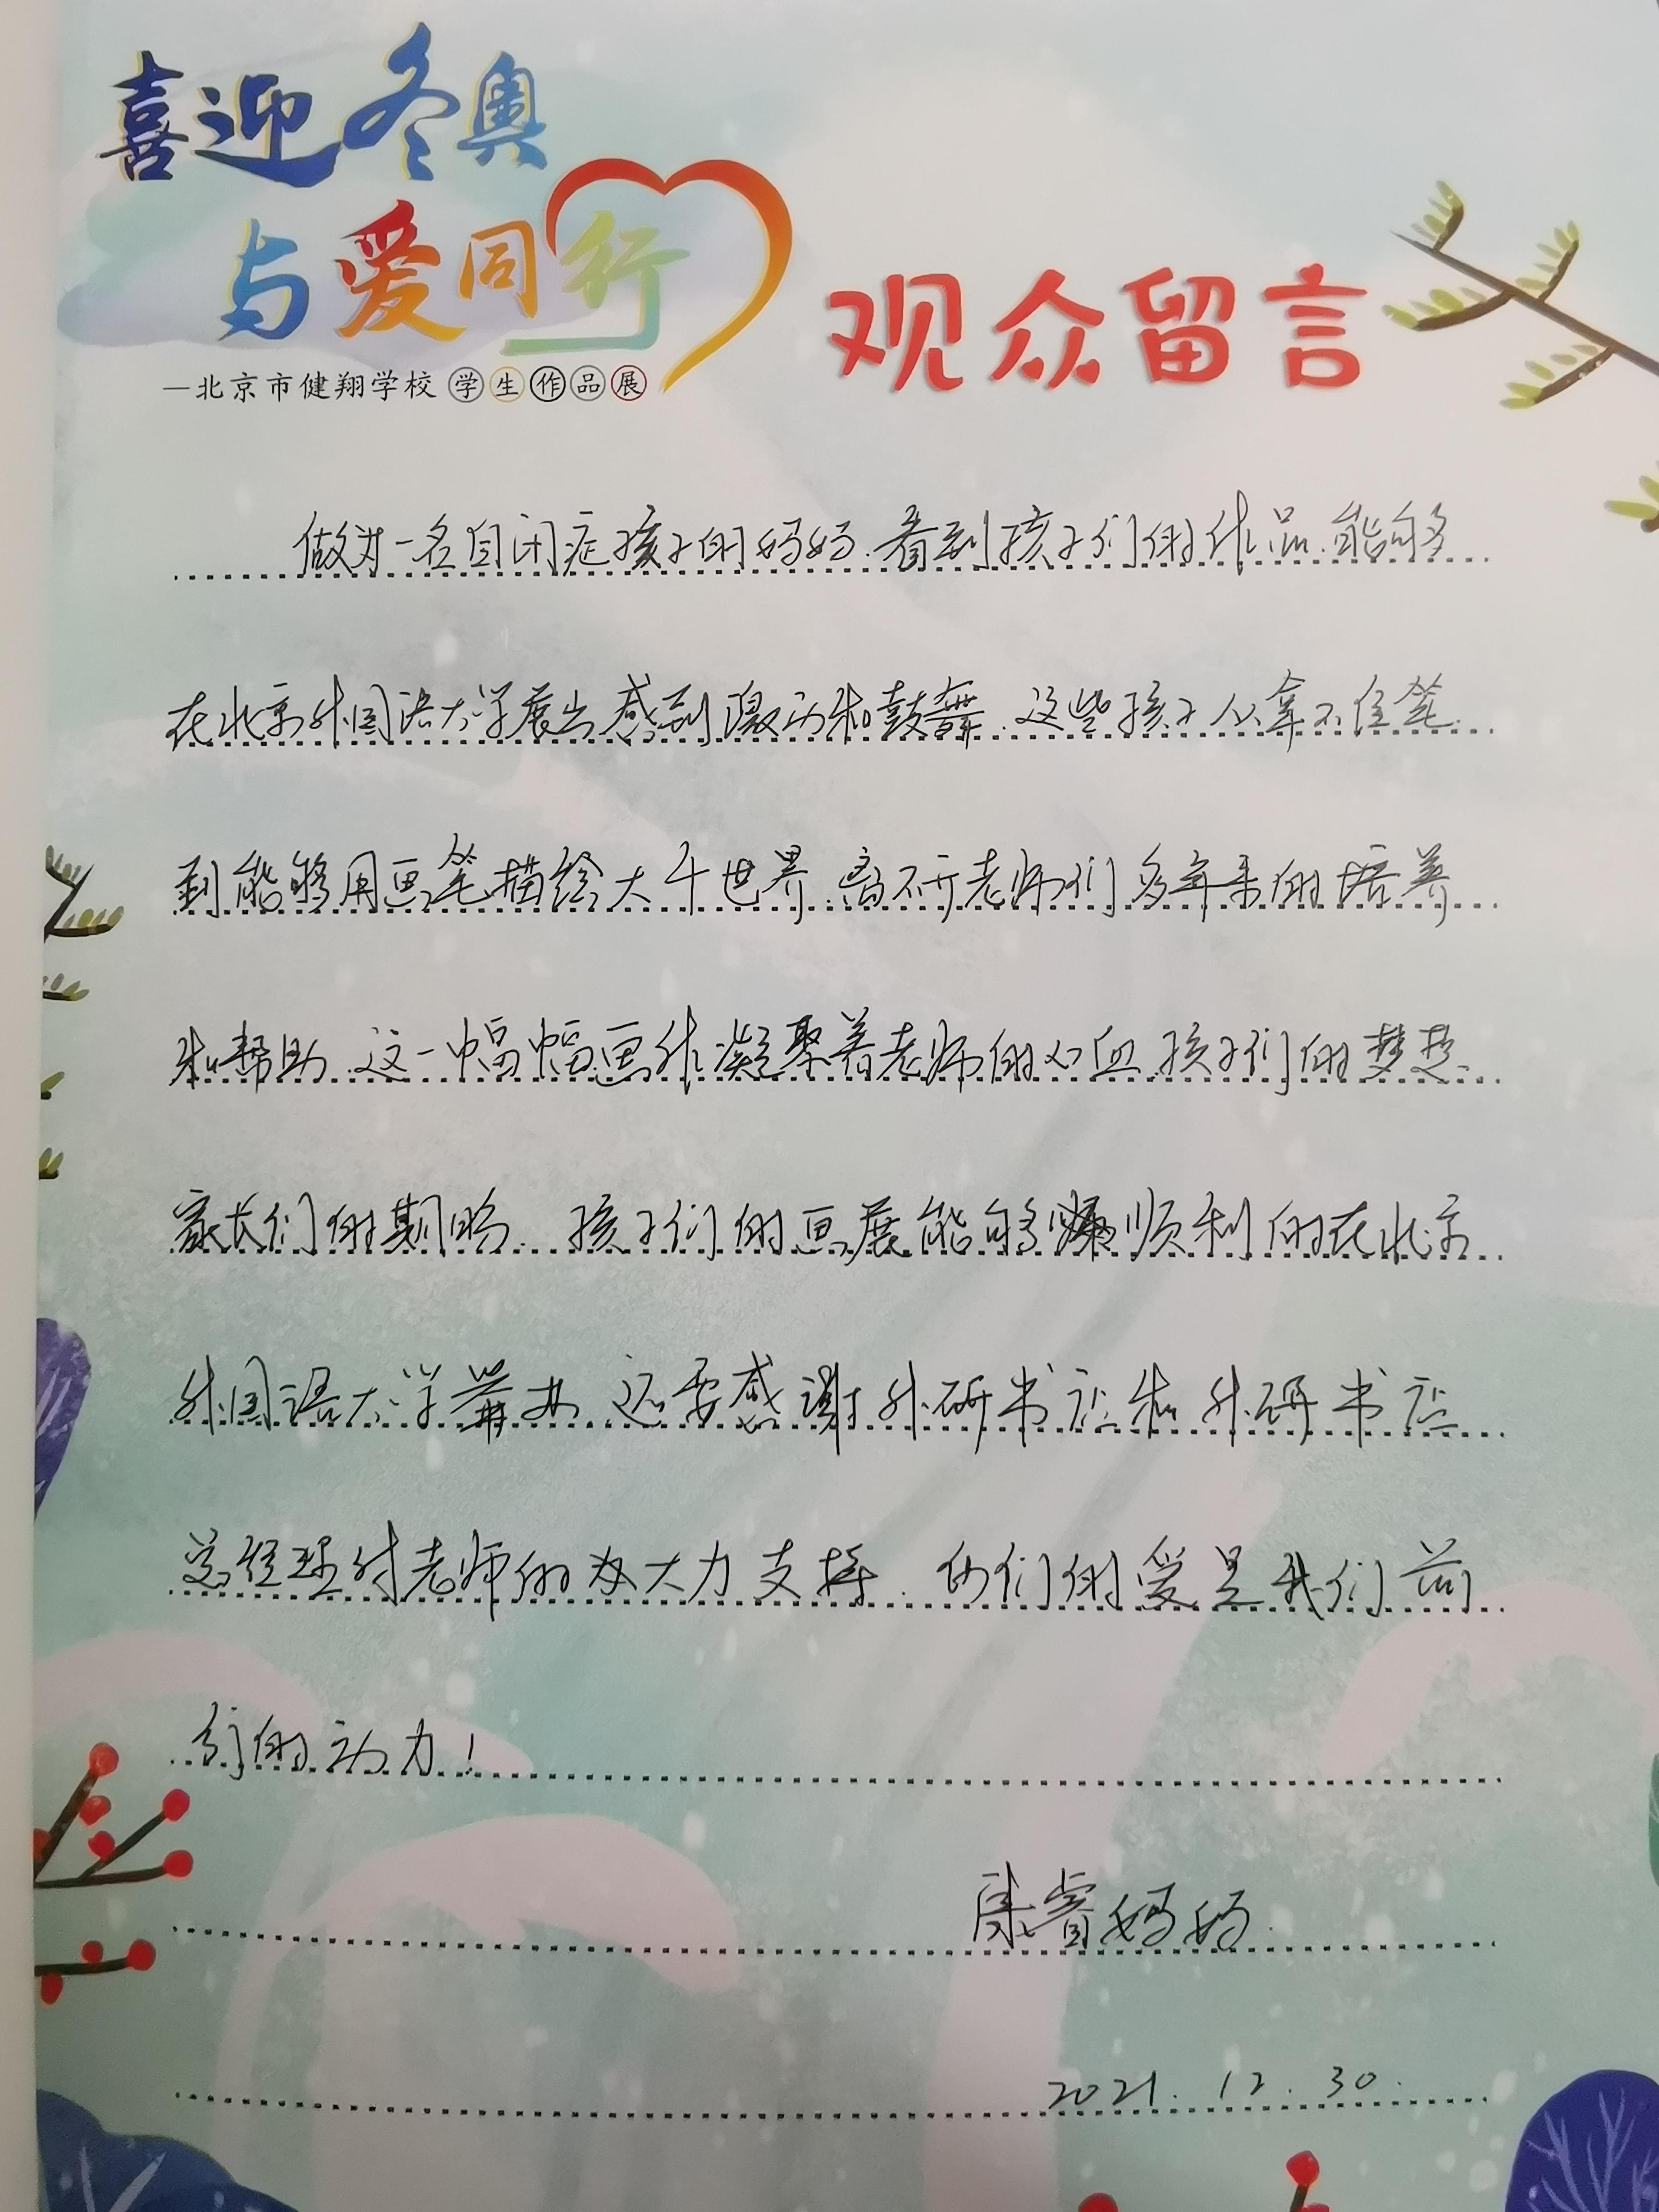 喜迎冬奥
与爱同行
—北京市健翔学校学生作品展
观众留言
做为一名自闭症孩子的妈妈.看到孩子们的作品.能够
在北京外国语大学展出感到激动和鼓舞.这些孩子从拿不住笔.
到能够用画笔描绘大千世界.离不开老师们多年来的培养
和帮助.这一幅幅画作凝聚着老师的心血.孩子们的梦想.
家长们的期盼.孩子们的画展能够顺利的在北京
外国语大学举办.还要感谢外研书店和外研书店
总经理付老师的大力支持.他们的爱是我们前
行的动力!
康睿妈妈.
2021.12.30.